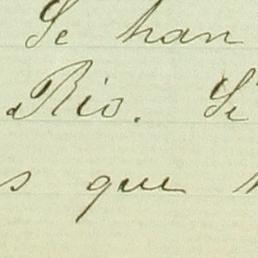 Se han
Rio. Si
s que